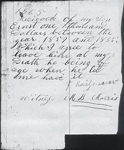 Received of my son
Ernst one thousand
Dollars between the
year 1884 and 1885
Which I agree to
leave him at my
Death he being of
age when he let
me have it
Witness M B Morris